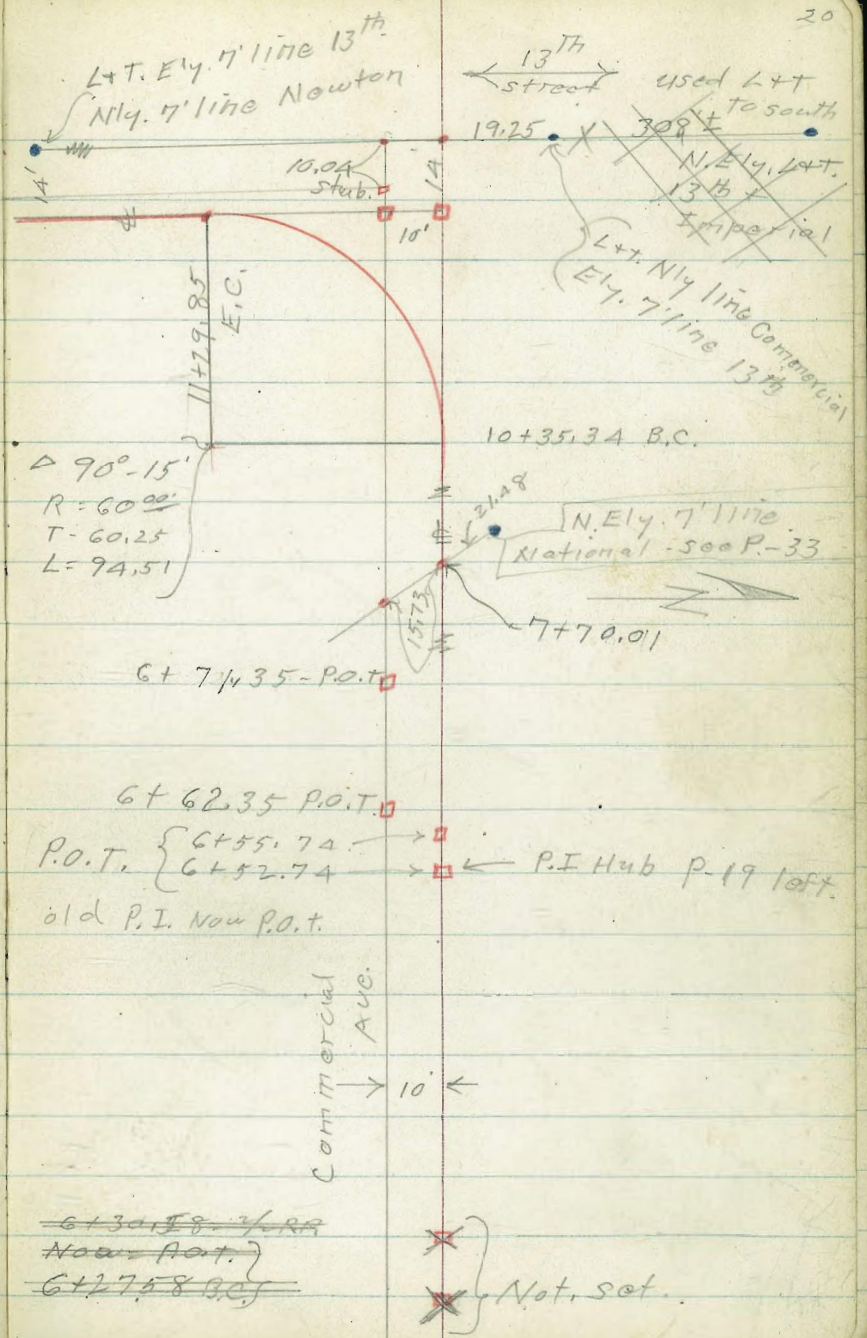 20
L+T. Ely. 7' line 13th
Nly. 7' line Newton
13TH
street
used L+T
to south
19.25
308'±
N.Ely. L+T.
13th +
Imperial
14'
10.04
stub.
14
10'
L+T. Nly line Commercial
Ely. 7' line 13th
℄
11+29.85
E.C.
10+35.34 B.C.
Δ 90°-15'
R = 60.00'
T - 60.25
L = 94.51
21.48
℄
N.Ely. 7' line
National - see P.-33
15.73
7+70.01
6+ 71.35 - P.O.T.
6+ 62.35 P.O.T.
P.O.T. { 6+55.74
6+52.74
P.I Hub P-19 left.
old P.I. Now P.O.T.
Commercial
Ave.
10'
Now = P.O.T.
6+27.58 B.C.
Not. set.